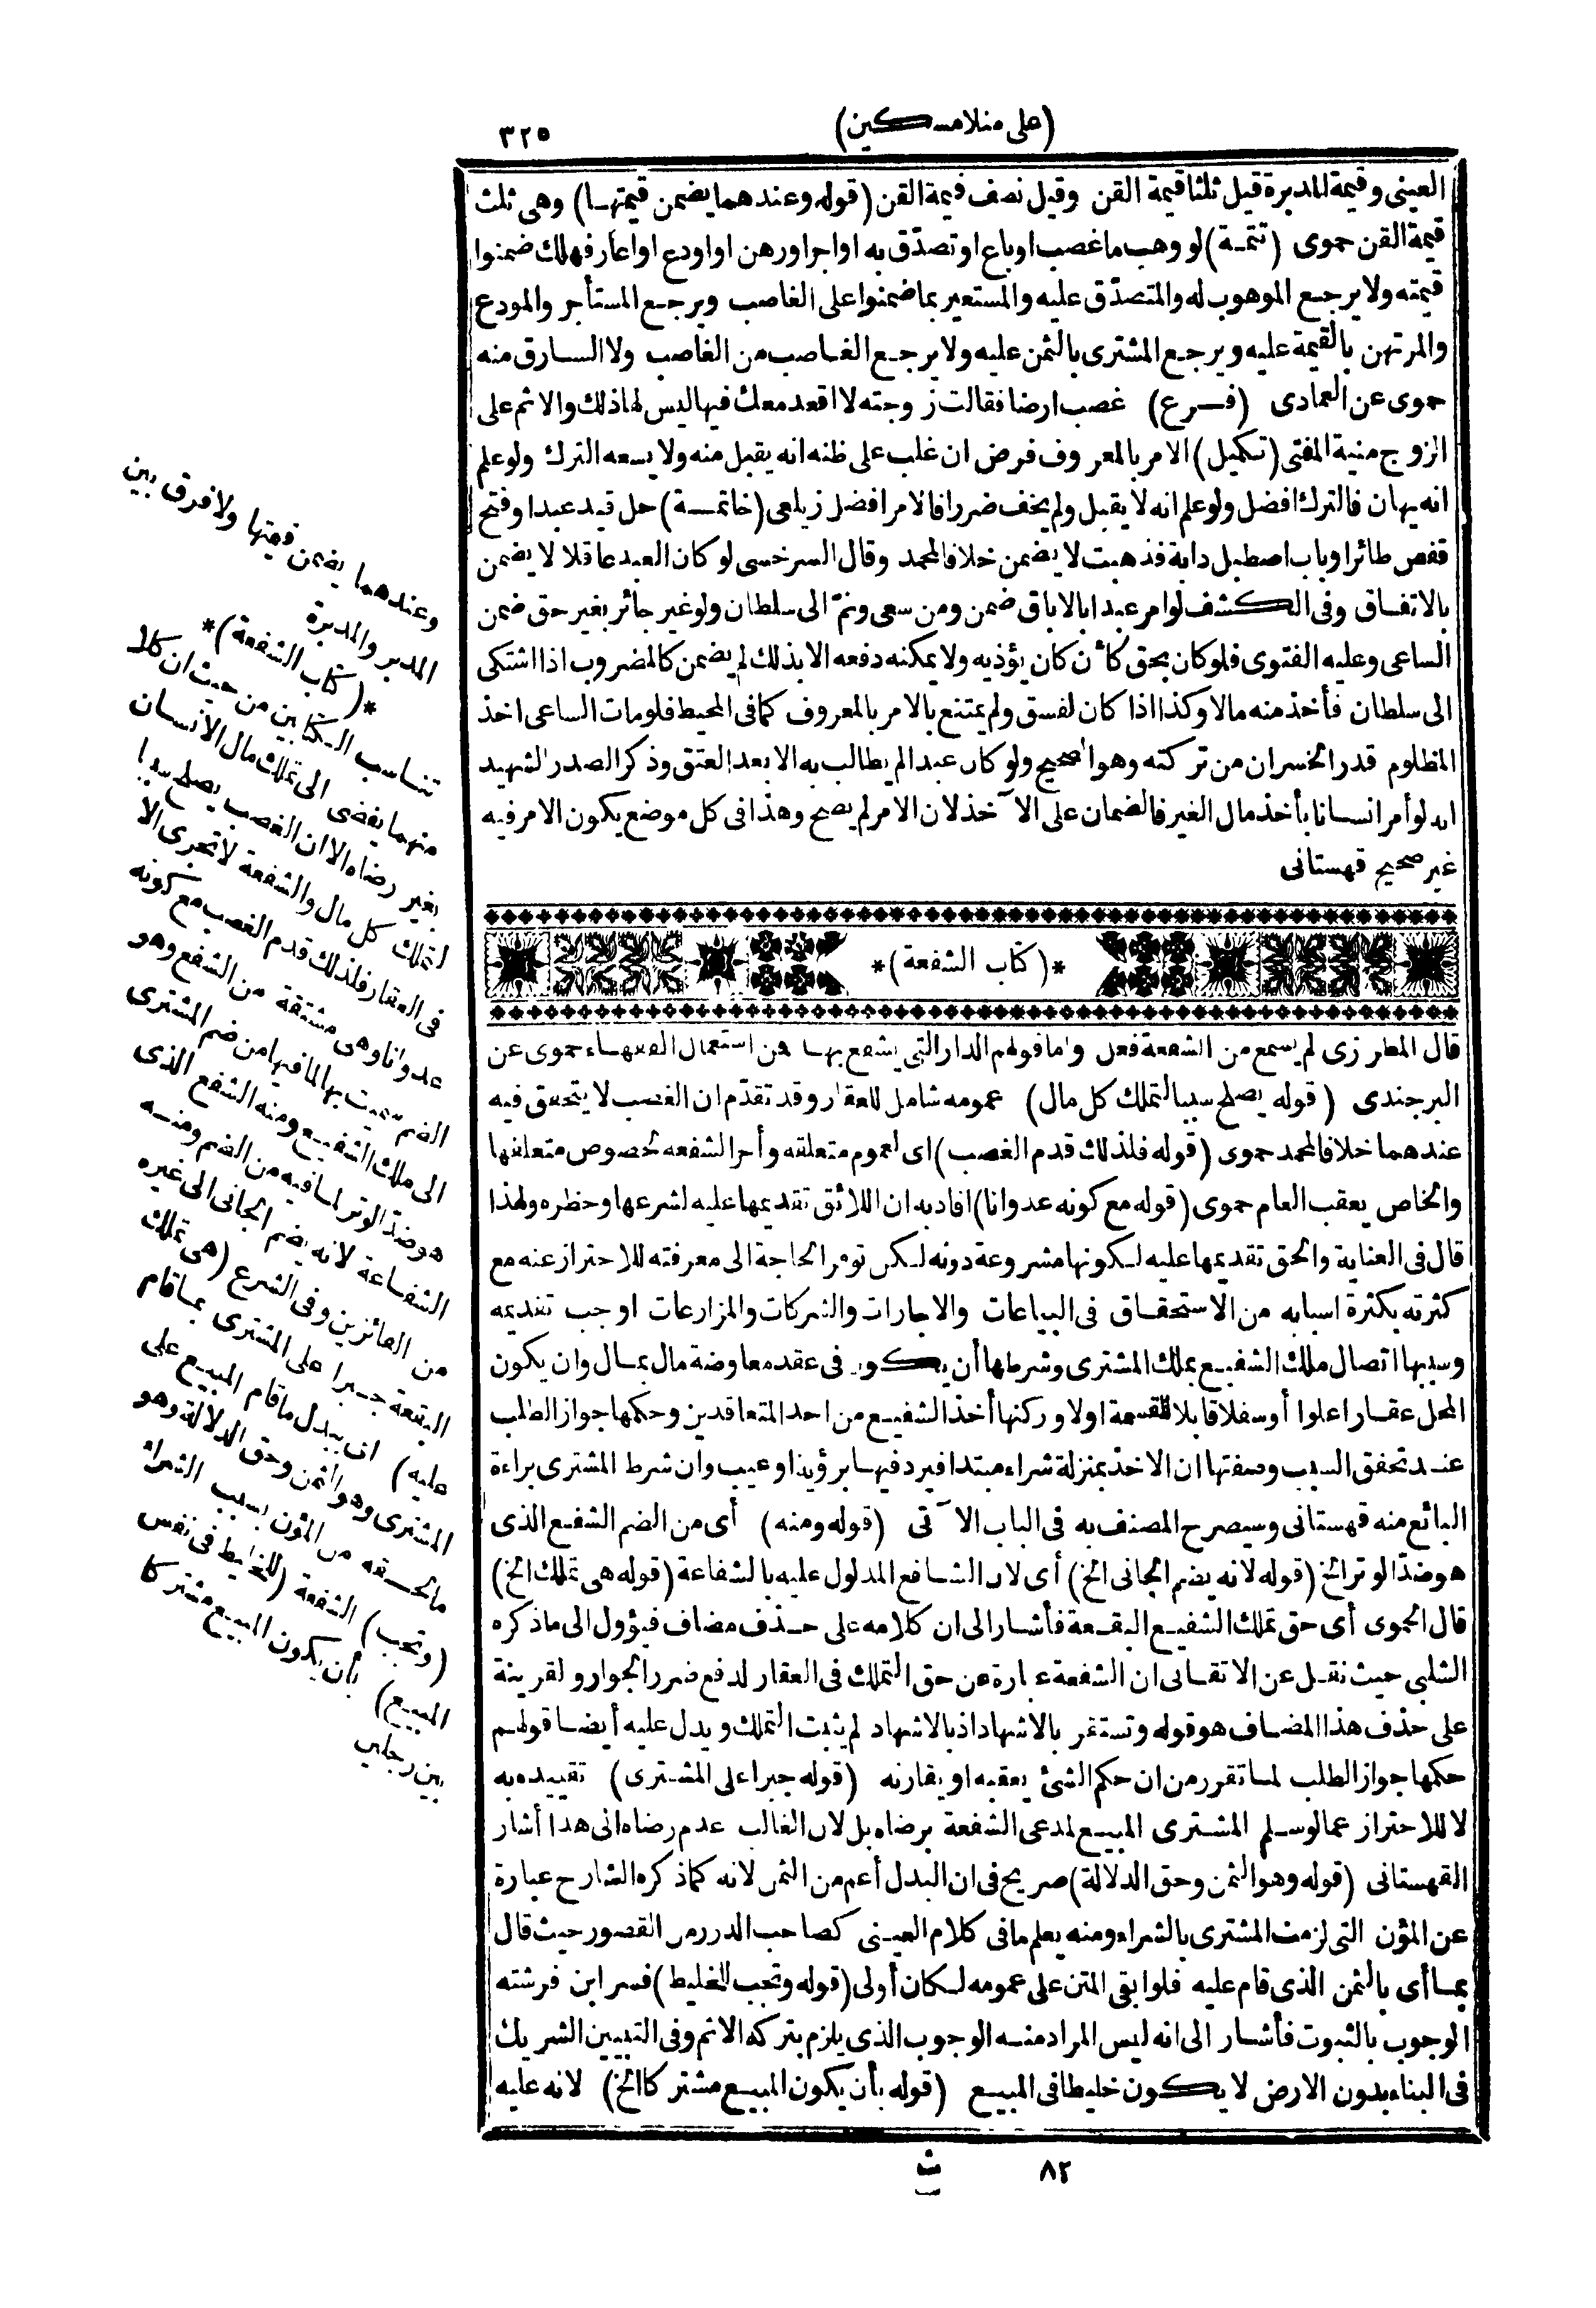 (على منلا مسكين)
٣٢٥
العينى وقيمة المدبرة قيل ثلثا قيمة القن وقيل نصف قيمة القن (قوله وعندهما يضمن قيمتها) وهى ثلث
قيمة القن حموى (تتمة) لو وهب ما غصب او باع او تصدّق به او اجر او رهن او اودع او اعار فهلك ضمنوا
قيمته ولا يرجع الموهوب له والمتصدّق عليه والمستعير بما ضمنوا على الغاصب ويرجع المستأجر والمودع
والمرتهن بالقيمة عليه ويرجع المشترى بالثمن عليه ولا يرجع الغاصب من الغاصب ولا السارق منه
حموى عن العمادى (فرع) غصب ارضا فقالت زوجته لا اقعد معك فيها ليس لها ذلك والاثم على
الزوج منية المفتى (تكميل) الامر بالمعروف فرض ان غلب على ظنه انه يقبل منه ولا يسعه الترك ولو علم
انه يهان فالترك افضل ولو علم انه لا يقبل ولم يخف ضررا فالامر افضل زيلعى (خاتمة) حل قيد عبد او فتح
قفص طائر او باب اصطبل دابة فذهبت لا يضمن خلافا لمحمد وقال السرخسى لو كان العبد عاقلا لا يضمن
بالاتفاق وفى الكشف لو امر عبدا بالاباق ضمن ومن سعى ونمّ الى سلطان ولو غير جائر بغير حق ضمن
الساعى وعليه الفتوى فلو كان بحق كأن كان يؤذيه ولا يمكنه دفعه الا بذلك لم يضمن كالمضروب اذا اشتكى
الى سلطان فأخذ منه مالا وكذا اذا كان لفسق ولم يمتنع بالامر بالمعروف كما فى المحيط فلو مات الساعى اخذ
المظلوم قدر الخسران من تركته وهو الصحيح ولو كان عبدا لم يطالب به الا بعد العتق وذكر الصدر الشهيد
انه لو أمر انسانا بأخذ مال الغير فالضمان على الآخذ لان الامر لم يصح وهذا فى كل موضع يكون الامر فيه
غير صحيح قهستانى
*(كتاب الشفعة)*
قال المطرزى لم يسمع من الشفعة فعل واما قولهم الدار التى يشفع بها فمن استعمال الفقهاء حموى عن
البرجندى (قوله يصلح سببا لتملك كل مال) عمومه شامل للعقار وقد تقدّم ان الغصب لا يتحقق فيه
عندهما خلافا لمحمد حموى (قوله فلذلك قدم الغصب) اى لعموم متعلقه وأخر الشفعه لخصوص متعلقها
والخاص يعقب العام حموى (قوله مع كونه عدوانا) افاد به ان اللائق تقديمها عليه لشرعها وحظره ولهذا
قال فى العناية والحق تقديمها عليه لكونها مشروعة دونه لكن توفر الحاجة الى معرفته للاحتراز عنه مع
كثرته بكثرة اسبابه من الاستحقاق فى البياعات والاجارات والشركات والمزارعات اوجب تقديمه
وسببها اتصال ملك الشفيع بملك المشترى وشرطها أن يكون فى عقد معاوضة مال بمال وان يكون
المحل عقارا علوا أو سفلا قابلا للقسمة اولا وركنها أخذ الشفيع من احد المتعاقدين وحكمها جواز الطلب
عند تحقق السبب وصفتها ان الاخذ بمنزلة شراء مبتدا فيرد فيها برؤية او عيب وان شرط المشترى براءة
البائع منه قهستانى وسيصرح المصنف به فى الباب الآتى (قوله ومنه) أى من الضم الشفيع الذى
هو ضدّ الوتر الخ (قوله لانه يضم الجانى الخ) أى لان الشافع المدلول عليه بالشفاعة (قوله هى تملك الخ)
قال الحموى أى حق تملك الشفيع البقعة فأشار الى ان كلامه على حذف مضاف فيؤول الى ما ذكره
الشلبى حيث نقل عن الاتقانى ان الشفعة عبارة عن حق التملك فى العقار لدفع ضرر الجوار ولقرينة
على حذف هذا المضاف هو قوله وتستقر بالاشهاد اذ بالاشهاد لم يثبت التملك ويدل عليه أيضا قولهم
حكمها جواز الطلب لما تقرر من ان حكم الشئ يعقبه او يقارنه (قوله جبرا على المشترى) تقييده به
لا للاحتراز عما لو سلم المشترى المبيع لمدعى الشفعة برضاه بل لان الغالب عدم رضاه الى هذا أشار
القهستانى (قوله وهو الثمن وحق الدلالة) صريح فى ان البدل أعم من الثمن لانه كما ذكره الشارح عبارة
عن المؤن التى لزمت المشترى بالشراء ومنه يعلم ما فى كلام العينى كصاحب الدرر من القصور حيث قال
بما أى بالثمن الذى قام عليه فلو ابقى المتن على عمومه لكان أولى (قوله وتجب للخليط) فسر ابن فرشته
الوجوب بالثبوت فأشار الى انه ليس المراد منه الوجوب الذى يلزم بتركه الاثم وفى التبيين الشريك
فى البناء بدون الارض لا يكون خليطا فى المبيع (قوله بأن يكون المبيع مشتركا الخ) لانه عليه
وعندهما يضمن قيمتها ولا فرق بين
المدبر والمدبرة
*(كتاب الشفعة)*
تناسب الكتابين من حيث ان كلا
منهما يفضى الى تملك مال الانسان
بغير رضاه الا ان الغصب يصلح سببا
لتملك كل مال والشفعة لا تجرى الا
فى العقار فلذلك قدم الغصب مع كونه
عدوانا وهى مشتقة من الشفع وهو
الضم سميت بها لما فيها من ضم المشترى
الى ملك الشفيع ومنه الشفع الذى
هو ضدّ الوتر لما فيه من الضم ومنه
الشفاعة لانه يضم الجانى الى غيره
من الفائزين وفى الشرع (هى تملك
البقعة جبرا على المشترى بما قام
عليه) اى ببدل ما قام المبيع على
المشترى وهو الثمن وحق الدلالة وهو
ما لحقه من المؤن بسبب الشراء
(وتجب) الشفعة (للخليط فى نفس
المبيع) بأن يكون المبيع مشتركا
بين رجلين
٨٢
ث